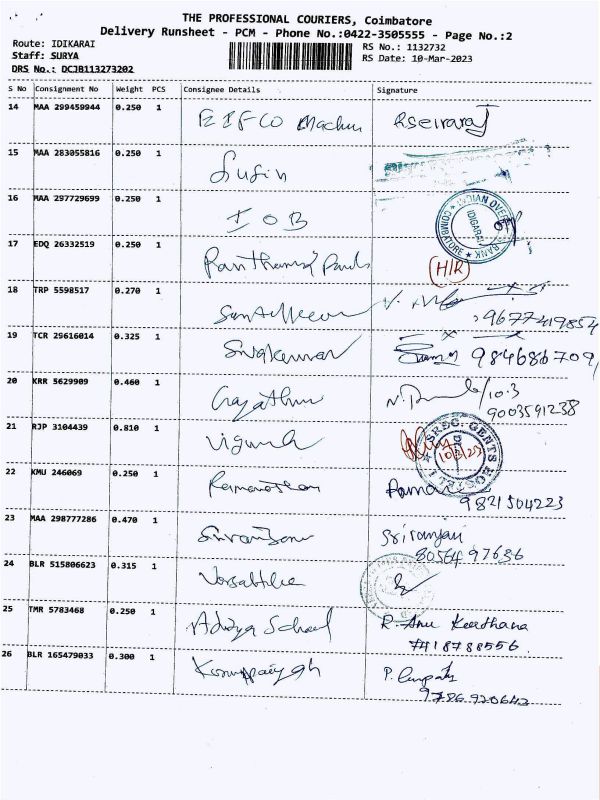 THE PROFESSIONAL COURIERS, Coimbatore
Delivery Runsheet - PCM - Phone No.:0422-3505555 - Page No.:2
Route: IDIKARAI
RS No.: 1132732
Staff: SURYA
RS Date: 10-Mar-2023
DRS No.: DCJB113273202
S No Consignment No Weight PCS Consignee Details Signature
14 MAA 299459944 0.250 1 Machin
15 MAA 283055816 0.250 1 Susin
16 MAA 297729699 0.250 1 I O B
INDIAN OVERSEAS BANK IDIGARAI COIMBATORE
17 EDQ 26332519 0.250 1
(H/R)
18 TRP 5598517 0.270 1
9677419854
19 TCR 29616014 0.325 1 Sivakumar
9846867091
20 KRR 5629909 0.460 1 Gayathri 10.3
9003591238
21 RJP 3104439 0.810 1 Vignesh
GENTS
22 KMU 246069 0.250 1 Ramanathan
9821504223
23 MAA 298777286 0.470 1 Sriranjani Sriranjani
8056497636
24 BLR 515806623 0.315 1 Versatile
25 TMR 5783468 0.250 1 Aditya School R. Anu Keerthana
7418788556
26 BLR 165479033 0.300 1 Karuppaiyah
9786920642